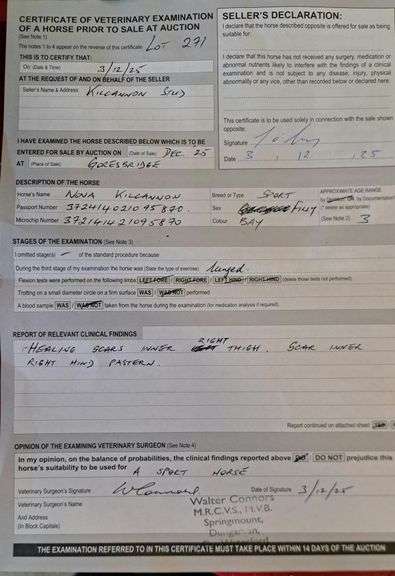 CERTIFICATE OF VETERINARY EXAMINATION
OF A HORSE PRIOR TO SALE AT AUCTION
(See Note 1)
The notes 1 to 4 appear on the reverse of this certificate LOT 271
THIS IS TO CERTIFY THAT:
On: (Date & Time) 3/12/25
AT THE REQUEST OF AND ON BEHALF OF THE SELLER
Seller's Name & Address KILCANNON STUD
SELLER'S DECLARATION:
I declare that the horse described opposite is offered for sale as being
suitable for:
I declare that this horse has not received any surgery, medication or
abnormal nutrients likely to interfere with the findings of a clinical
examination and is not subject to any disease, injury, physical
abnormality or any vice, other than recorded below or declared here.
This certificate is to be used solely in connection with the sale shown
opposite.
Signature
Date 3 . 12 . 25
I HAVE EXAMINED THE HORSE DESCRIBED BELOW WHICH IS TO BE
ENTERED FOR SALE BY AUCTION ON (Date of Sale) DEC. 25
AT (Place of Sale) GORESBRIDGE
DESCRIPTION OF THE HORSE
Horse's Name NOVA KILCANNON Breed or Type SPORT
APPROXIMATE AGE RANGE
Passport Number 372414021095870 Sex FILLY
Microchip Number 372141421095870 Colour BAY (See Note 2) 3
STAGES OF THE EXAMINATION (See Note 3)
I omitted stage(s) - of the standard procedure because
During the third stage of my examination the horse was (State the type of exercise) lunged
Flexion tests were performed on the following limbs LEFT FORE / RIGHT FORE / LEFT HIND / RIGHT HIND (delete those tests not performed)
Trotting on a small diameter circle on a firm surface WAS / WAS NOT performed
A blood sample WAS / WAS NOT taken from the horse during the examination (for medication analysis if required).
REPORT OF RELEVANT CLINICAL FINDINGS
HEALING SCARS INNER RIGHT THIGH. SCAR INNER
RIGHT HIND PASTERN.
Report continued on attached sheet
OPINION OF THE EXAMINING VETERINARY SURGEON (See Note 4)
In my opinion, on the balance of probabilities, the clinical findings reported above DO / DO NOT prejudice this
horse's suitability to be used for A SPORT HORSE
Veterinary Surgeon's Signature W Connors Date of Signature 3/12/25
Veterinary Surgeon's Name Walter Connors
M.R.C.V.S., M.V.B.
And Address Springmount,
(In Block Capitals) Dungarvan,
THE EXAMINATION REFERRED TO IN THIS CERTIFICATE MUST TAKE PLACE WITHIN 14 DAYS OF THE AUCTION